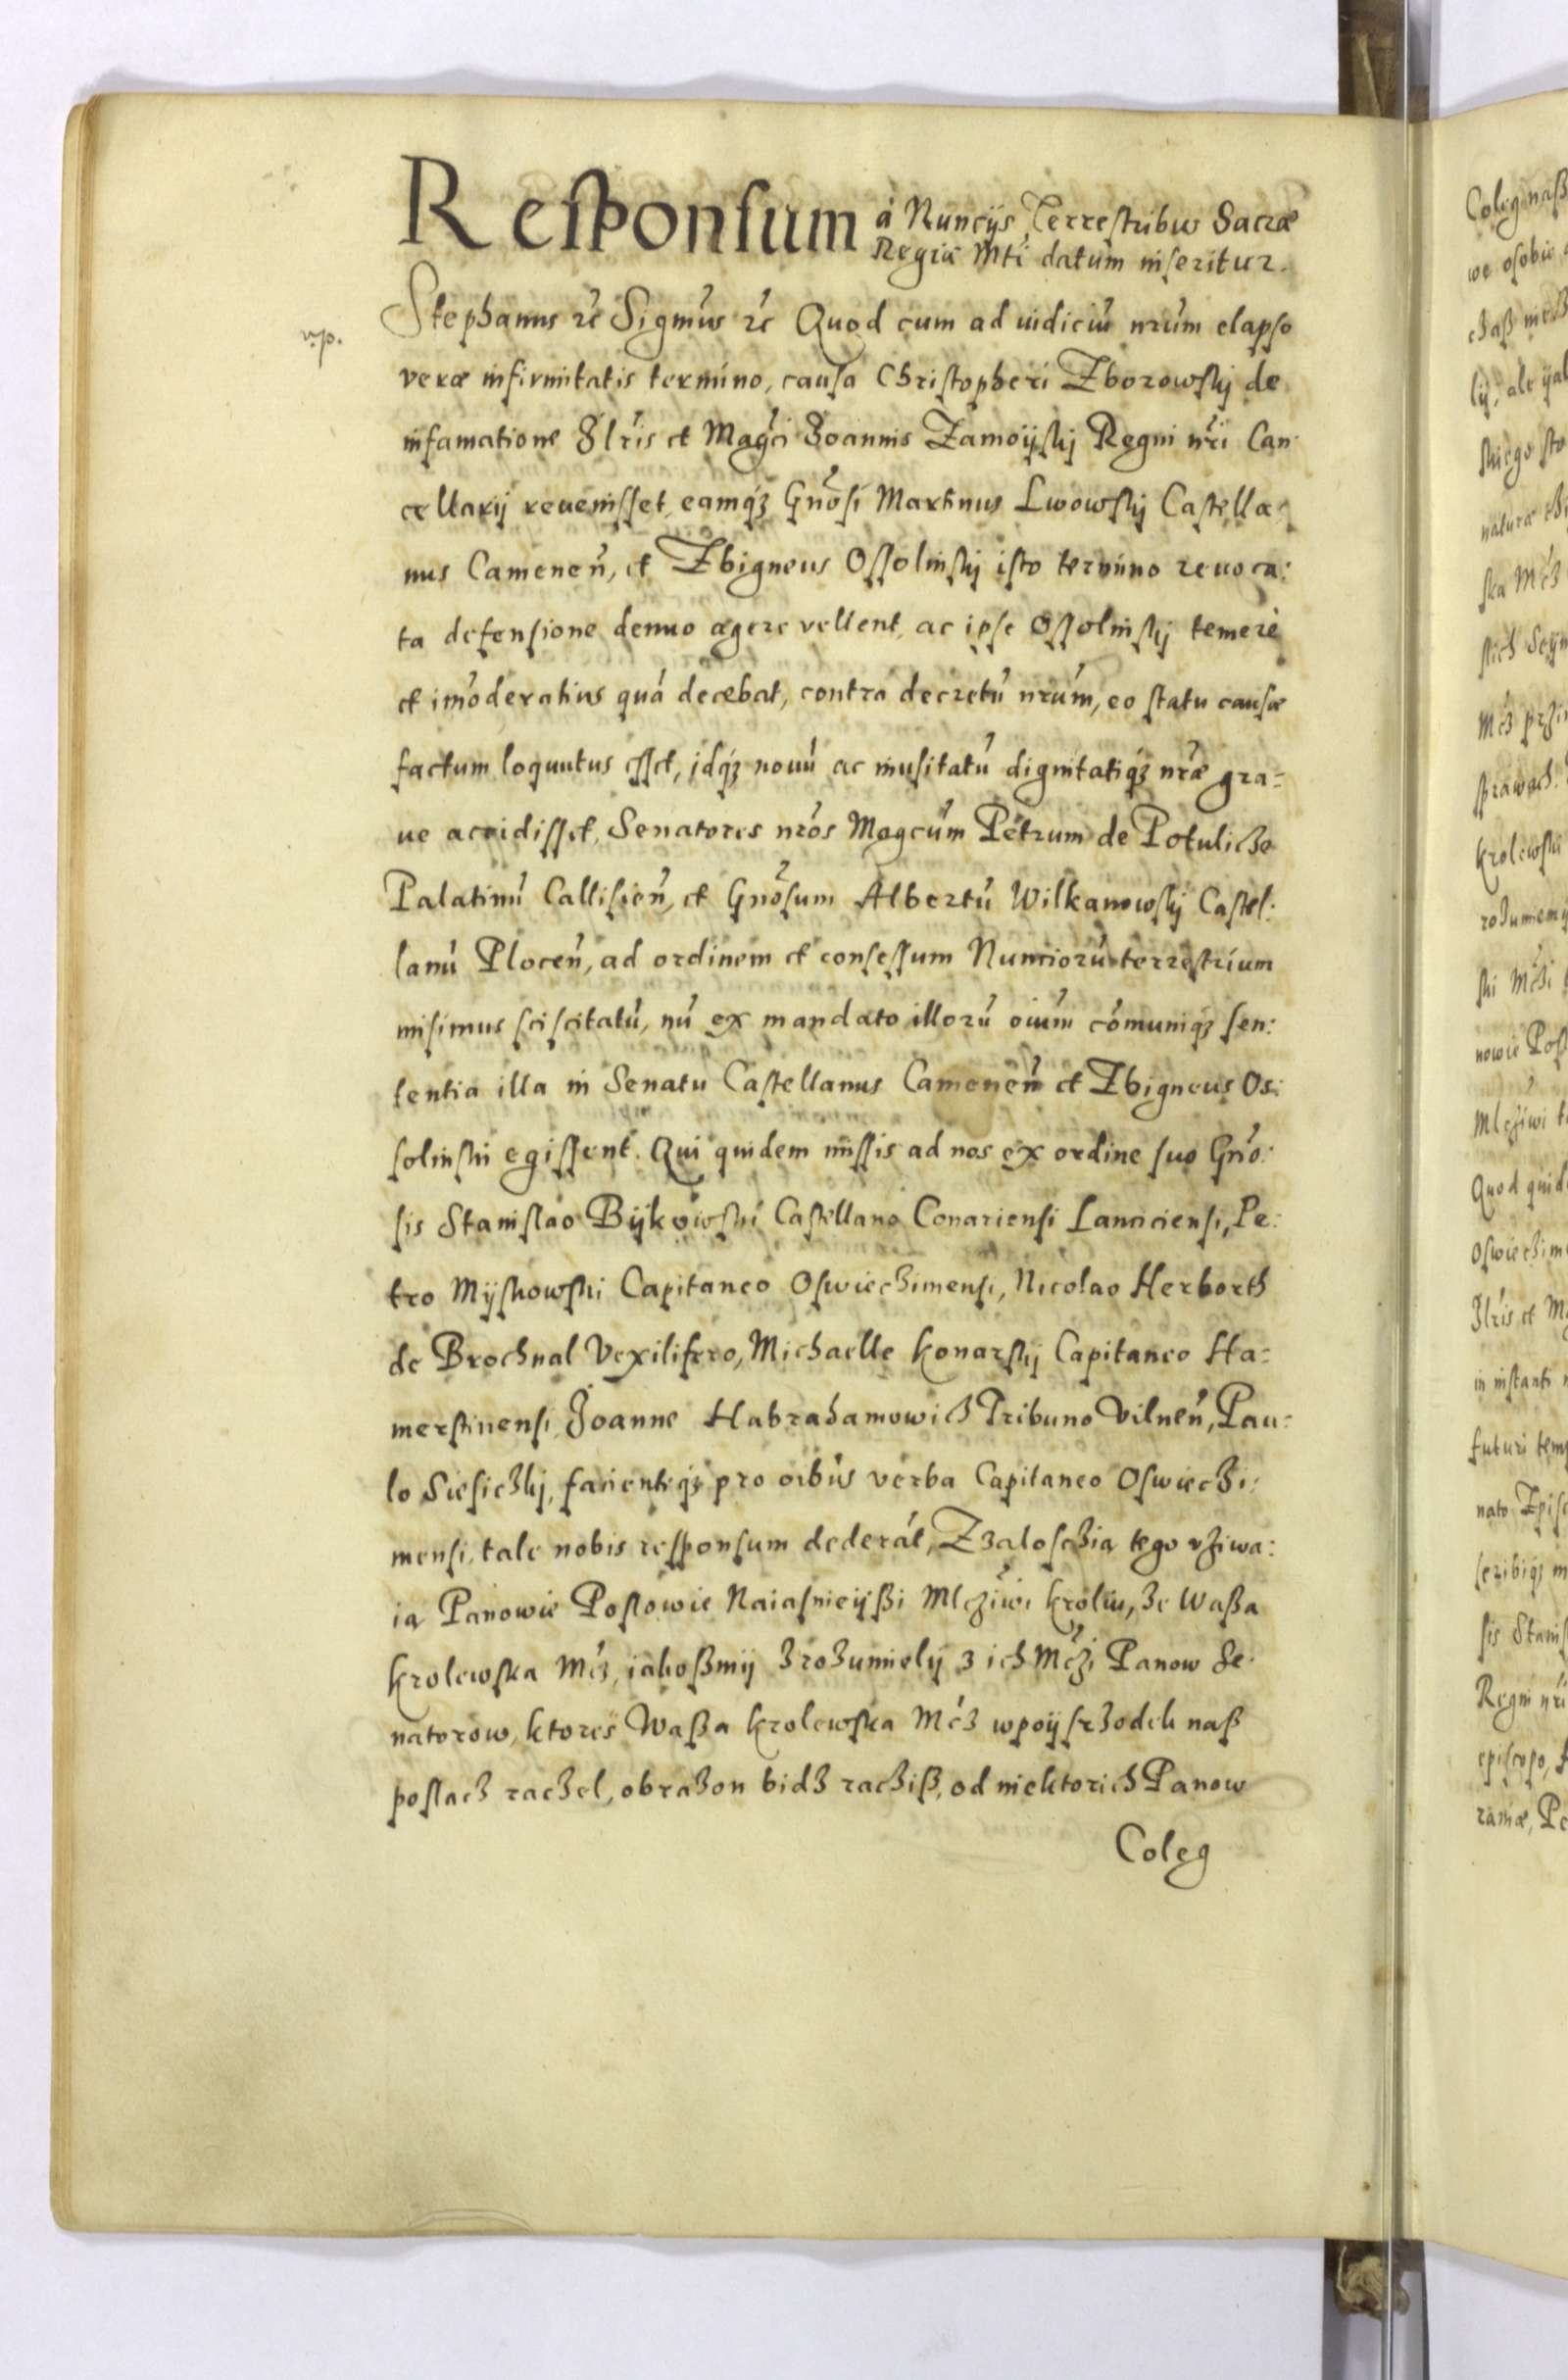 Responsum à Nuncijs Terrestribus Sacræ
Regiæ Mti datum inseritur.
v.p.
Stephanus rc̃ Sigm̃us rc̃ Quod cum ad iudiciũ nrũm elapso
veræ infirmitatis termino, causa Christopheri Zborowskij de
infamatione Illr̃is et Magc̃i Joannis Zamoijskij Regni nr̃i Can:
cellarij reuenisset, eamq́ȝ Gnõsi Martinus Lwowskij Castella:
nus Camenen̄, et Zbigneus Ossolinskij isto termino reuoca:
ta defensione denuo agere vellent, ac ipse Ossolinskij temerè
et im̃oderatius quá decebat, contra decretũ nrũm, eo statu causæ
factum loquutus esset, idq́ȝ nouũ ac inusitatũ dignitatiq́ȝ nr̃æ gra=
ue accidisset, Senatores nrõs Magcũm Petrum de Potulicze
Palatinũ Callisien̄, et Gnõsum Albertũ Wilkanowskij Castel:
lanũ Plocen̄, ad ordinem et consessum Nunciorũ terrestrium
misimus sciscitatũ, nũ ex mandato illorũ oiũm cõmuniq́ȝ sen:
tentia illa in Senatu Castellanus Camenen̄ et Zbigneus Os:
solinski egissent. Qui quidem missis ad nos ex ordine suo Gnõ:
sis Stanislao Bijkowski Castellano Conariensi Lanciciensi, Pe:
tro Mijskowski Capitaneo Oswieczimensi, Nicolao Herborth
de Brochnal Vexilifero, Michaelle Konarskij Capitaneo Ha=
merstinensi, Joanne Habrahamowicz Tribuno Vilnen̄, Pau=
lo Siesiczkij, facientiq́ȝ pro oibũs verba Capitaneo Oswieczi:
mensi, tale nobis responsum dederãt, Zzalosczią tego vżiwa:
ią Panowie Posłowie Naiasnieijßi Mlcziwi Kroliu, ze Waßa
Krolewska Mc̃z, iakoßmij zrozumielij z ich Mc̃zi Panow Se:
natorow, ktores Waßa Krolewska Mc̃z wpoijsrzodek naß
posłacz raczel, obrazon bidz racziß, od niektorich Panow
Coleg